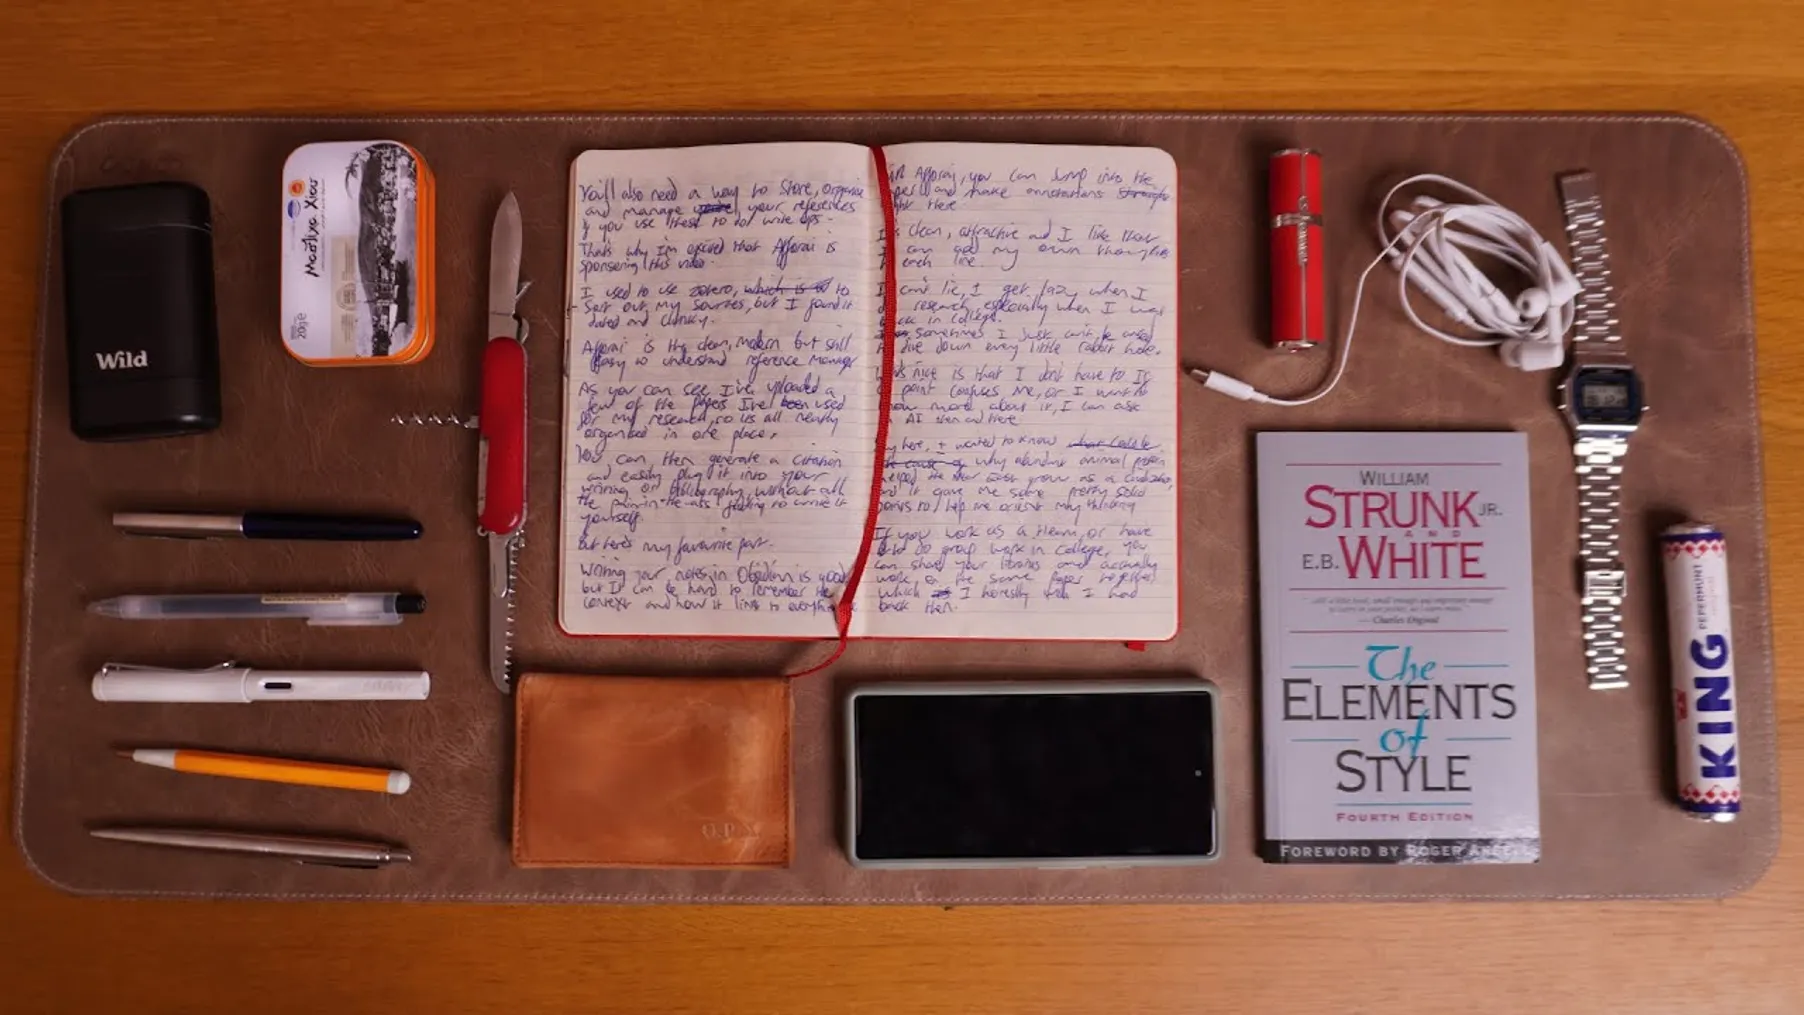 Wild
Μαστίχα Χίου
20g e
You'll also need a way to store, organise
and manage your references
if you use these to do write ups.
That's why I'm excited that Afforai is
sponsoring this video.
I used to use zotero, which is to
sort out my sources, but I found it
dated and clunky.
Afforai is the clean, modern but still
easy to understand reference manager
As you can see I've uploaded a
few of the papers I've been used
for my research, so its all neatly
organised in one place.
You can then generate a citation
and easily plug it into your
writing or bibliography without all
the pain-in-the-ass of having to write it
yourself.
But here's my favourite part.
Writing your notes in Obsidian is good
but it can be hard to remember the
context and how it links to everything
Afforai, you can jump into the
and make annotations
right here
clean, attractive and I like that
I can add my own thoughts
to each line.
I can't lie, I get lazy when I
research, especially when I was
back in college.
sometimes I just can't be arsed
to dive down every little rabbit hole.
What's nice is that I don't have to. If
a point confuses me, or I want to
know more about it, I can ask
AI then and there
here, I wanted to know
why abundant animal protein
helped the grow as a
and it gave me some pretty solid
points to help me orient my thinking
If you work as a team, or have
to do group work in college, you
can share your libraries and actually
work on the same paper together
which I honestly wish I had
back then.
O.P.
WILLIAM
STRUNK JR.
AND
E.B. WHITE
— Charles Osgood
The
ELEMENTS
of
STYLE
FOURTH EDITION
FOREWORD BY ROGER ANGELL
KING
PEPPERMINT